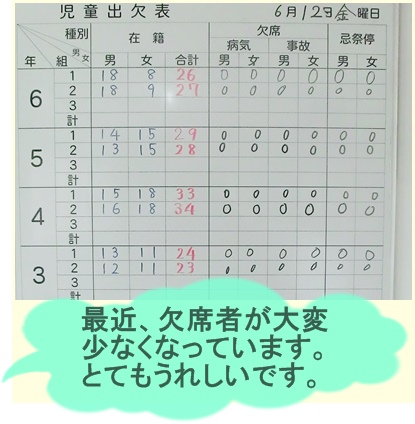 児童出欠表 6月12日金曜日
種別 男女 在籍 欠席 忌祭停
病気 事故
年 組 男 女 合計 男 女 男 女 男 女
6 1 18 8 26 0 0 0 0 0 0
2 18 9 27 0 0 0 0 0 0
3
計
5 1 14 15 29 0 0 0 0 0 0
2 13 15 28 0 0 0 0 0 0
3
計
4 1 15 18 33 0 0 0 0 0 0
2 16 18 34 0 0 0 0 0 0
3
計
3 1 13 11 24 0 0 0 0 0 0
2 12 11 23 0 0 0 0 0 0
3
最近、欠席者が大変
少なくなっています。
とてもうれしいです。